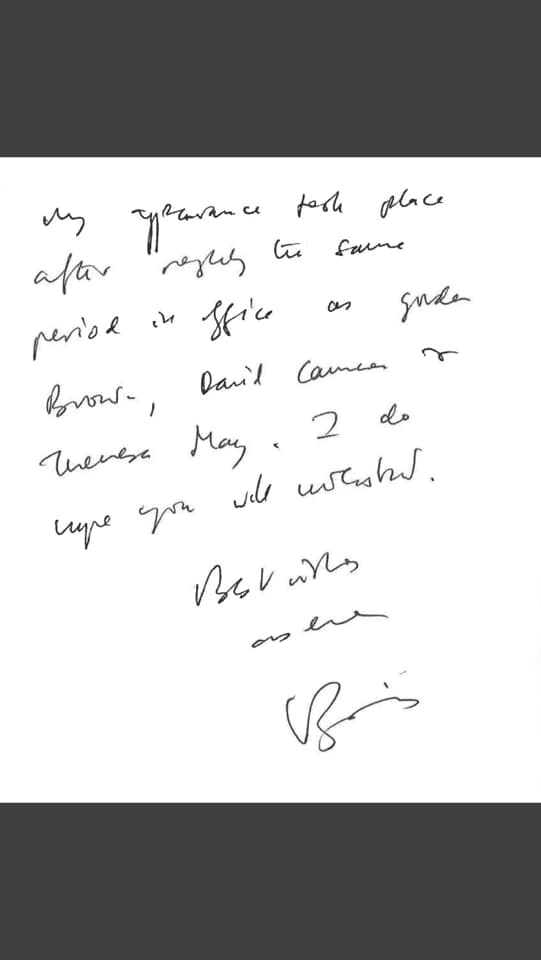 My appearance took place
after roughly the same
period in office as Gordon
Brown, David Cameron &
Theresa May. I do
hope you will understand.
Best wishes
as ever
Boris